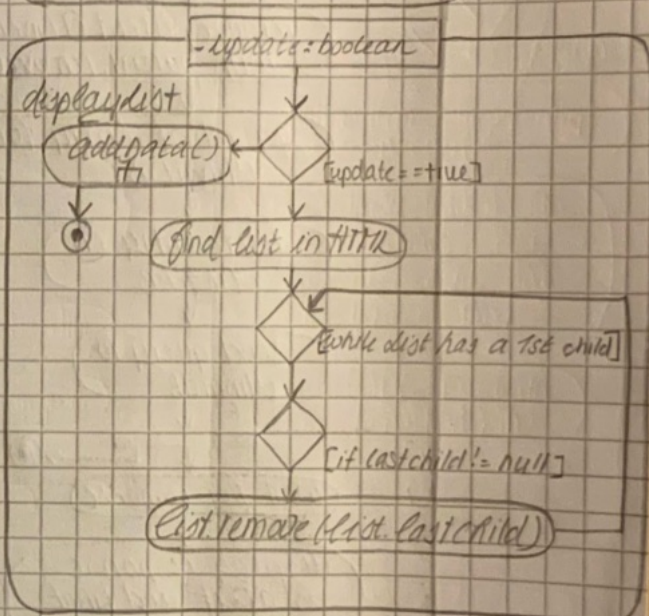 -update:boolean
displayList
addData()
[update==true]
find list in HTML
[while List has a 1st child]
[if lastchild!= null]
list.remove(list.lastchild)